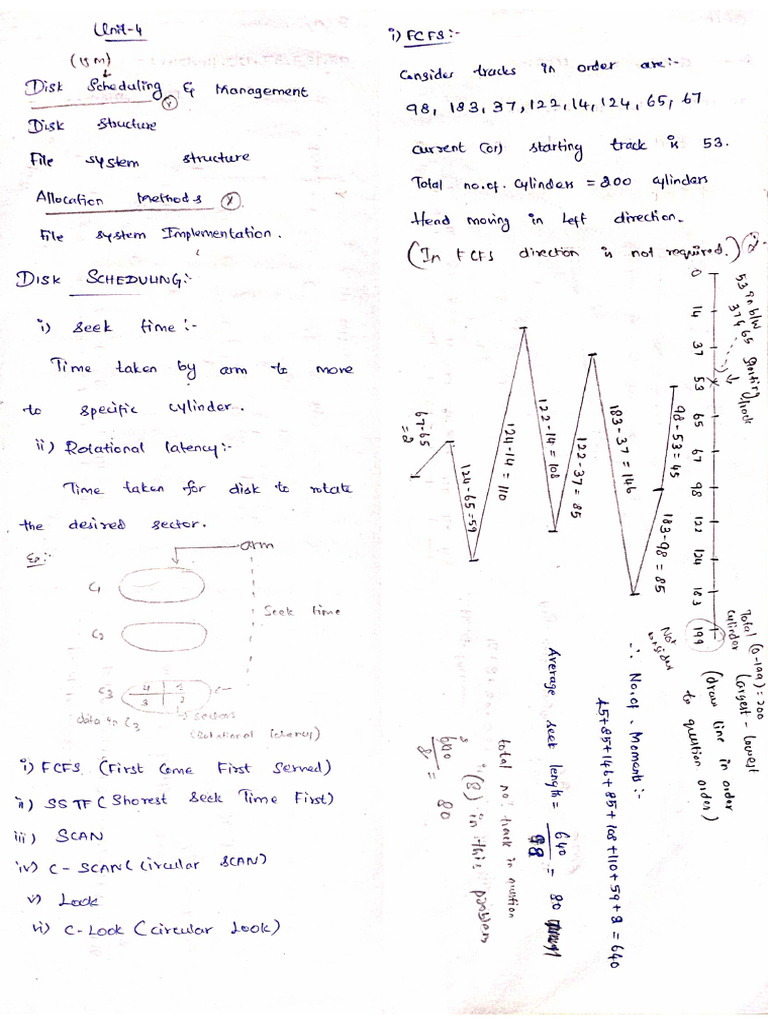 Unit-4
(15m)
Disk Scheduling & Management
Disk structure
File system structure
Allocation methods
File system Implementation.
DISK SCHEDULING:-
i) seek time :-
Time taken by arm to move
to specific cylinder.
ii) Rotational latency:-
Time taken for disk to rotate
the desired sector.
Ex:-
arm
C1
C2
Seek time
C3
4 1
3 2
data in C3
sectors
(Rotational latency)
i) FCFS (First Come First Served)
ii) SSTF (Shorest Seek Time First)
iii) SCAN
iv) C-SCAN (circular SCAN)
v) Look
vi) C-Look (circular Look)
i) FCFS:-
Consider tracks in order are:-
98, 183, 37, 122, 14, 124, 65, 67
current (or) starting track is 53.
Total no.of. cylinders = 200 cylinders
Head moving in left direction.
(In FCFS direction is not required.)
0 14 37 53 65 67 98 122 124 183 199
53 in b/w
37 & 65 starting
track
98-53=45
183-98=85
183-37=146
122-37=85
122-14=108
124-14=110
124-65=59
67-65
=2
Not
Total (0-199)=200
cylinder largest - lowest
(draw line in order
to question order)
∴ No.of. Moments:-
45+85+146+85+108+110+59+2=640
Average seek length = 640/8 = 80
total no. track in question
is (8) in this problem
640/8 = 80